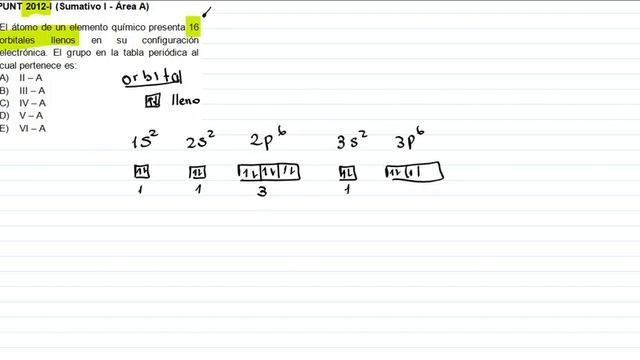 PUNT 2012-I (Sumativo I - Área A)
El átomo de un elemento químico presenta 16
orbitales llenos en su configuración
electrónica. El grupo en la tabla periódica al
cual pertenece es:
A) II – A
B) III – A
C) IV – A
D) V – A
E) VI – A
orbital
lleno
1s² 2s² 2p⁶ 3s² 3p⁶
1 1 3 1